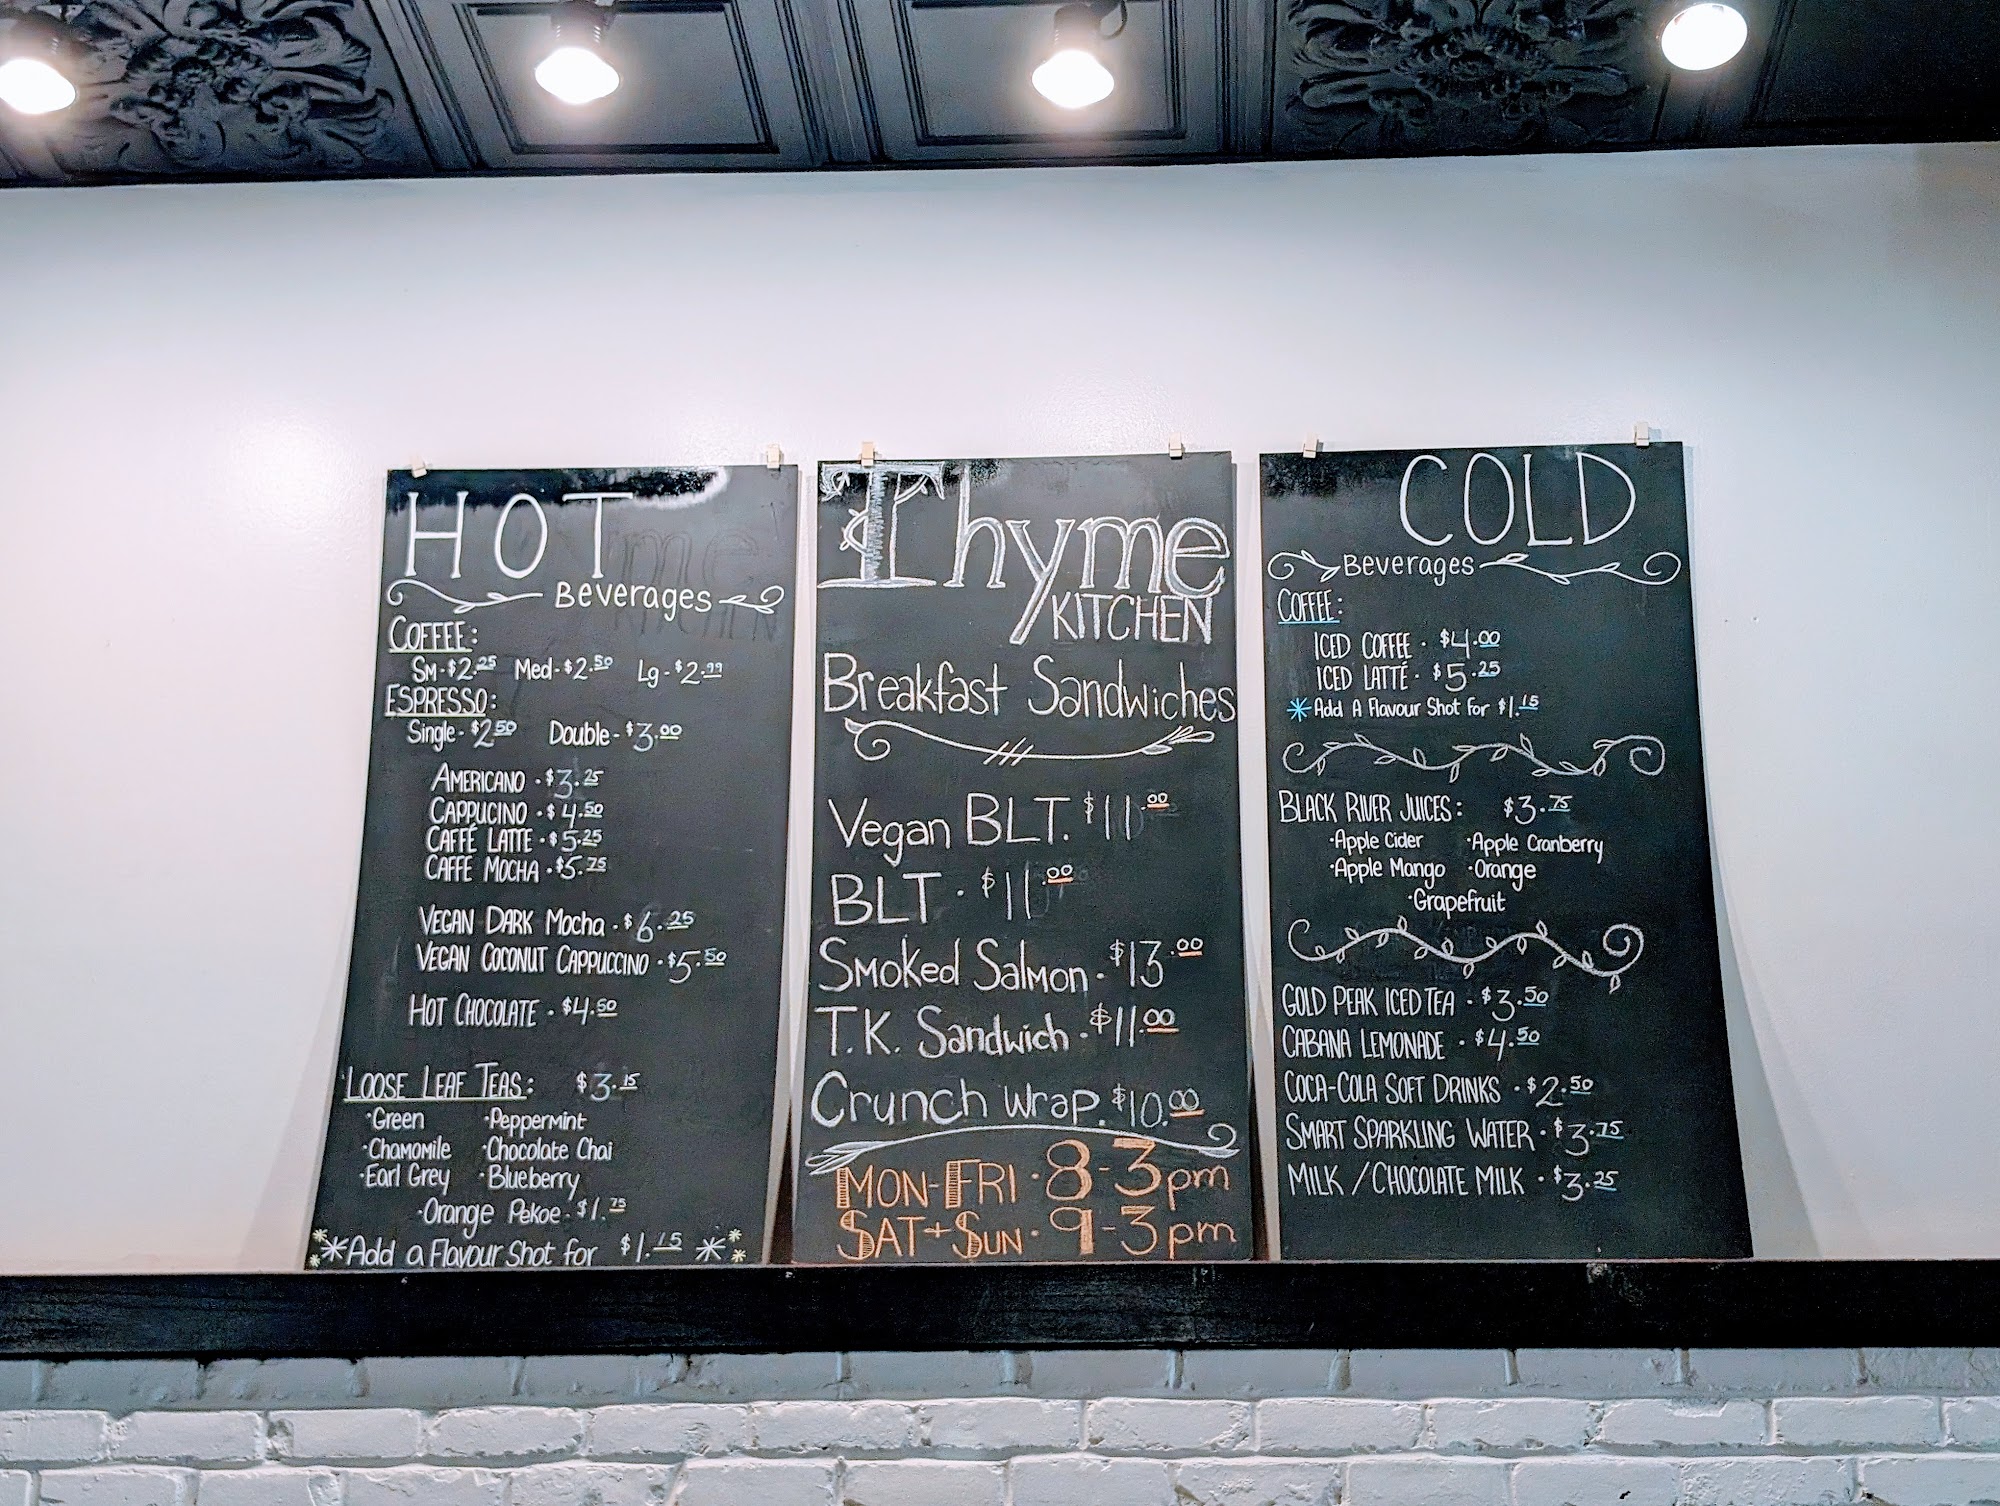 HOT
Beverages
COFFEE:
SM-$2.25 Med-$2.50 Lg-$2.99
ESPRESSO:
Single-$2.50 Double-$3.00
AMERICANO · $3.25
CAPPUCINO · $4.50
CAFFÉ LATTE · $5.25
CAFFE MOCHA · $5.75
VEGAN DARK Mocha · $6.25
VEGAN COCONUT CAPPUCCINO · $5.50
HOT CHOCOLATE · $4.50
LOOSE LEAF TEAS: $3.15
·Green ·Peppermint
·Chamomile ·Chocolate Chai
·Earl Grey ·Blueberry
·Orange Pekoe · $1.75
*Add a Flavour Shot for $1.15 *
Thyme
KITCHEN
Breakfast Sandwiches
Vegan BLT. $11.00
BLT · $11.00
Smoked Salmon · $13.00
T.K. Sandwich · $11.00
Crunch Wrap. $10.00
MON-FRI · 8-3pm
SAT+SUN · 9-3pm
COLD
Beverages
COFFEE:
ICED COFFEE · $4.00
ICED LATTÉ · $5.25
*Add A Flavour Shot for $1.15
BLACK RIVER JUICES: $3.75
·Apple Cider ·Apple Cranberry
·Apple Mango ·Orange
·Grapefruit
GOLD PEAK ICED TEA · $3.50
CABANA LEMONADE · $4.50
COCA-COLA SOFT DRINKS · $2.50
SMART SPARKLING WATER · $3.75
MILK / CHOCOLATE MILK · $3.25